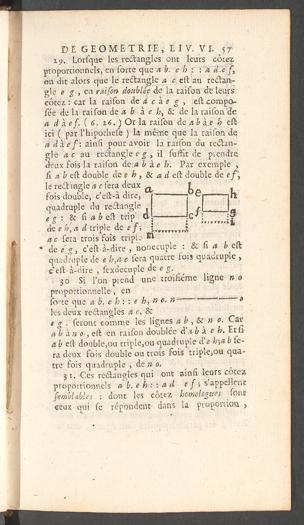 DE GEOMETRIE, LIV. VI. 57
29. Lorsque les rectangles ont leurs côtez
proportionnels, en sorte que a b. e h : : a d e f,
on dit alors que le rectangle a c est au rectan-
gle e g, en raison doublée de la raison de leurs
côtez : car la raison de a c à e g, est compo-
sée de la raison de a b à e h, & de la raison de
a d à e f. (6. 26.) Or la raison de a b à e h est
ici (par l'hipothese) la même que la raison de
a d à e f : ainsi pour avoir la raison du rectan-
gle a c au rectangle e g, il suffit de prendre
deux fois la raison de a b à e h. Par exemple,
si a b est double de e h, & a d est double de e f,
le rectangle a c sera deux
fois double, c'est-à dire,
quadruple du rectangle
e g : & si a b est trip
de e h, a d triple de e f ;
a c sera trois fois tripl.
de e g, c'est-à-dire, nonecuple : & si a b est
quadruple de e h, a c sera quatre fois quadruple,
c'est-à-dire, sexdecuple de e g.
a b e h
d c f g
i
m
30 Si l'on prend une troisiéme ligne n o
proportionnelle, en
sorte que a b. e h : : e h, n o. n o
les deux rectangles a c, &
e g. seront comme les lignes a b, & n o. Car
a b à n o, est en raison doublée d'a b à e h. Et si
a b est double, ou triple, ou quadruple d'e h, a b se-
ra deux fois double ou trois fois triple, ou qua-
tre fois quadruple, de n o.
31. Ces rectangles qui ont ainsi leurs côtez
proportionnels a b. e h : : a d e f, s'appellent
semblables : dont les côtez homologues sont
ceux qui se répondent dans la proportion,